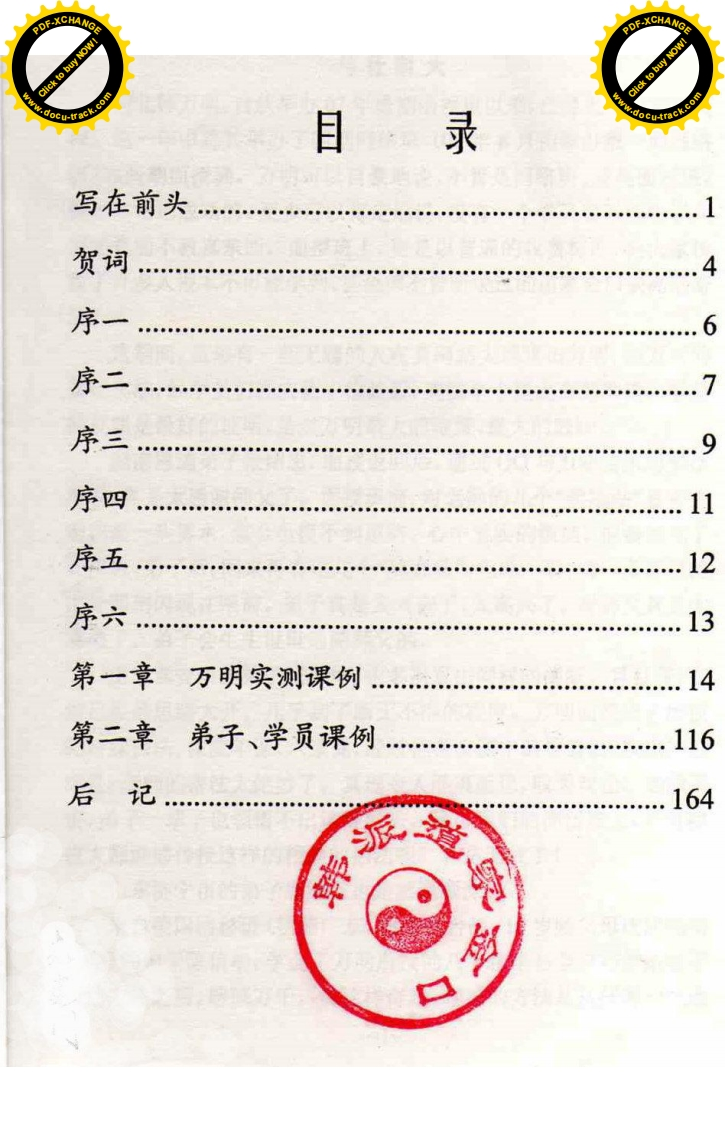 PDF-XCHANGE
Click to buy NOW!
www.docu-track.com
PDF-XCHANGE
Click to buy NOW!
www.docu-track.com
目 录
写在前头 1
贺词 4
序一 6
序二 7
序三 9
序四 11
序五 12
序六 13
第一章 万明实测课例 14
第二章 弟子、学员课例 116
后 记 164
韩派道家金口